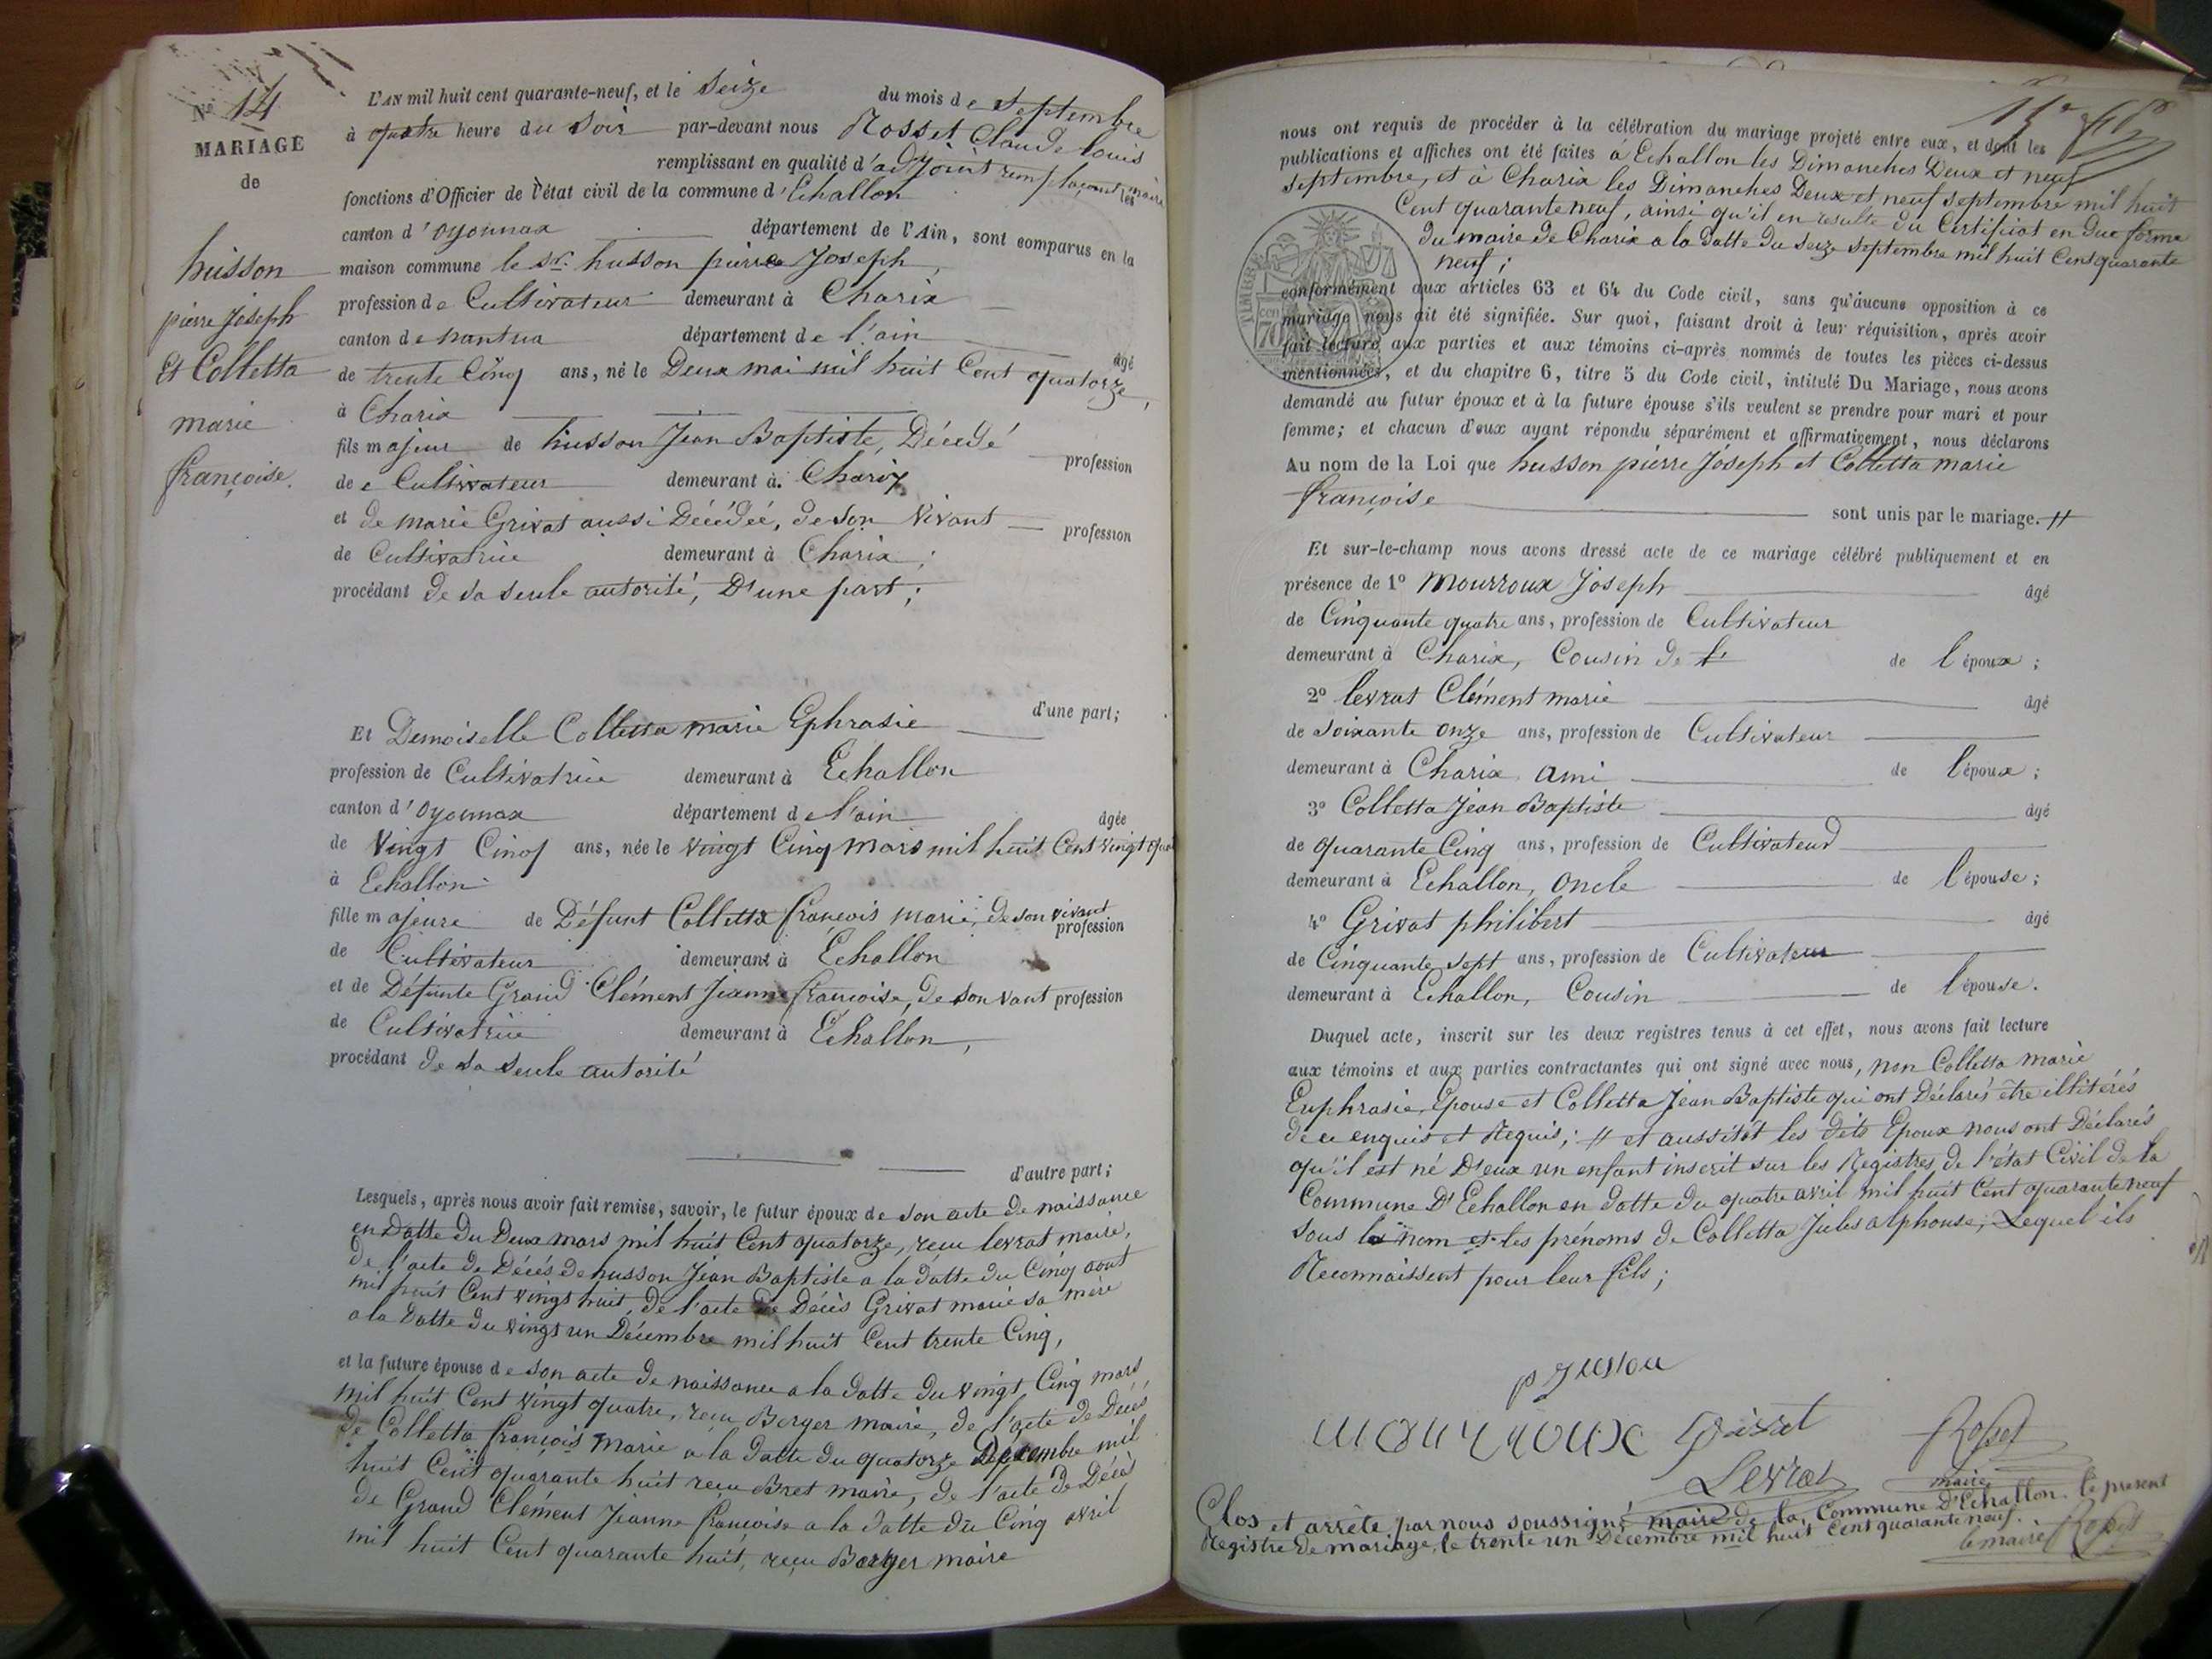 N° 14
MARIAGE
de
husson
pierre Joseph
Et Colletta
marie
françoise.
L'AN mil huit cent quarante-neuf, et le Seize du mois de Septembre
à quatre heure du Soir par-devant nous Rosset Claude louis
remplissant en qualité d'adjoint remplaçant le maire les
fonctions d'Officier de l'état civil de la commune d'Echallon
canton d'Oyonnax département de l'Ain, sont comparus en la
maison commune le Sr. husson pierre Joseph,
profession de Cultivateur demeurant à Charix
canton de nantua département de l'ain âgé
de trente Cinq ans, né le Deux mai mil huit Cent quatorze,
à Charix
fils majeur de husson Jean Baptiste, Décédé profession
de e Cultivateur demeurant à Charix
et de marie Grivat aussi Décédée, de son vivant profession
de Cultivatrice demeurant à Charix ;
procédant de sa seule autorité, D'une part ;
d'une part;
Et Demoiselle Colletta marie Ephrasie
profession de Cultivatrice demeurant à Echallon
canton d'Oyonnax département de l'ain âgée
de Vingt Cinq ans, née le vingt Cinq mars mil huit Cent vingt qua
à Echallon
fille majeure de Défunt Colletta françois marie, de son vivant profession
de Cultivateur demeurant à Echallon
et de Défunte Grand Clément Jeanne françoise, de son vant profession
de Cultivatrice demeurant à Echallon,
procédant de sa seule autorité
d'autre part;
Lesquels, après nous avoir fait remise, savoir, le futur époux de son acte de naissance
en Datte du Deux mars mil huit Cent quatorze, reçu levrat maire,
de l'acte de Décés de husson Jean Baptiste a la datte du Cinq aout
mil huit Cent vingt huit, de l'acte de Décès Grivat marie sa mère
a la Datte du vingt un Décembre mil huit Cent trente Cinq,
et la future épouse de son acte de naissance a la datte du vingt Cinq mars
mil huit Cent vingt quatre, reçu Berger maire, de l'acte de Décés
de Colletta françois Marie a la datte du quatorze Decembre mil
huit Cent quarante huit reçu Bret maire, de l'acte de Décès
de Grand Clément Jeanne françoise a la datte du Cinq avril
mil huit Cent quarante huit, reçu Berger maire
nous ont requis de procéder à la célébration du mariage projeté entre eux, et dont les
publications et affiches ont été faites à Echallon les Dimanches Deux et neuf
Septembre, et à Charix les Dimanches Deux et neuf septembre mil huit
Cent quarante neuf, ainsi qu'il en resulte du Certificat en due forme
du maire de Charix a la datte du seize septembre mil huit Cent quarante
neuf ;
TIMBRE
70
conformément aux articles 63 et 64 du Code civil, sans qu'aucune opposition à ce
mariage nous ait été signifiée. Sur quoi, faisant droit à leur réquisition, après avoir
fait lecture aux parties et aux témoins ci-après nommés de toutes les pièces ci-dessus
mentionnées, et du chapitre 6, titre 5 du Code civil, intitulé Du Mariage, nous avons
demandé au futur époux et à la future épouse s'ils veulent se prendre pour mari et pour
femme; et chacun d'eux ayant répondu séparément et affirmativement, nous déclarons
Au nom de la Loi que husson pierre Joseph et Colletta marie
françoise sont unis par le mariage. #
Et sur-le-champ nous avons dressé acte de ce mariage célébré publiquement et en
présence de 1° Mourroux Joseph âgé
de Cinquante quatre ans, profession de Cultivateur
demeurant à Charix, Cousin de l' de l'époux ;
2° levrat Clément marie âgé
de Soixante onze ans, profession de Cultivateur
demeurant à Charix ami de l'époux ;
3° Colletta Jean Baptiste âgé
de quarante Cinq ans, profession de Cultivateur
demeurant à Echallon, oncle de l'épouse ;
4° Grivat philibert âgé
de Cinquante sept ans, profession de Cultivateur
demeurant à Echallon, Cousin de l'épouse.
Duquel acte, inscrit sur les deux registres tenus à cet effet, nous avons fait lecture
aux témoins et aux parties contractantes qui ont signé avec nous, non Colletta marie
Euphrasie, Epouse et Colletta Jean Baptiste qui ont Déclarés être illitérés
de ce enquis et Requis ; # et aussitôt les dits Epoux nous ont Déclarés
qu'il est né D'eux un enfant inscrit sur les Registres de l'état Civil de la
Commune D'Echallon en datte du quatre avril mil huit Cent quarante neuf
sous le nom et les prénoms de Colletta Jules alphonse, Lequel ils
Reconnaissent pour leur fils ;
mourroux
Levrat
Rosset
maire
Clos et arrêté par nous soussigné maire de la Commune D'Echallon le present
Registre de mariage, le trente un Décembre mil huit Cent quarante neuf.
le maire Rosset